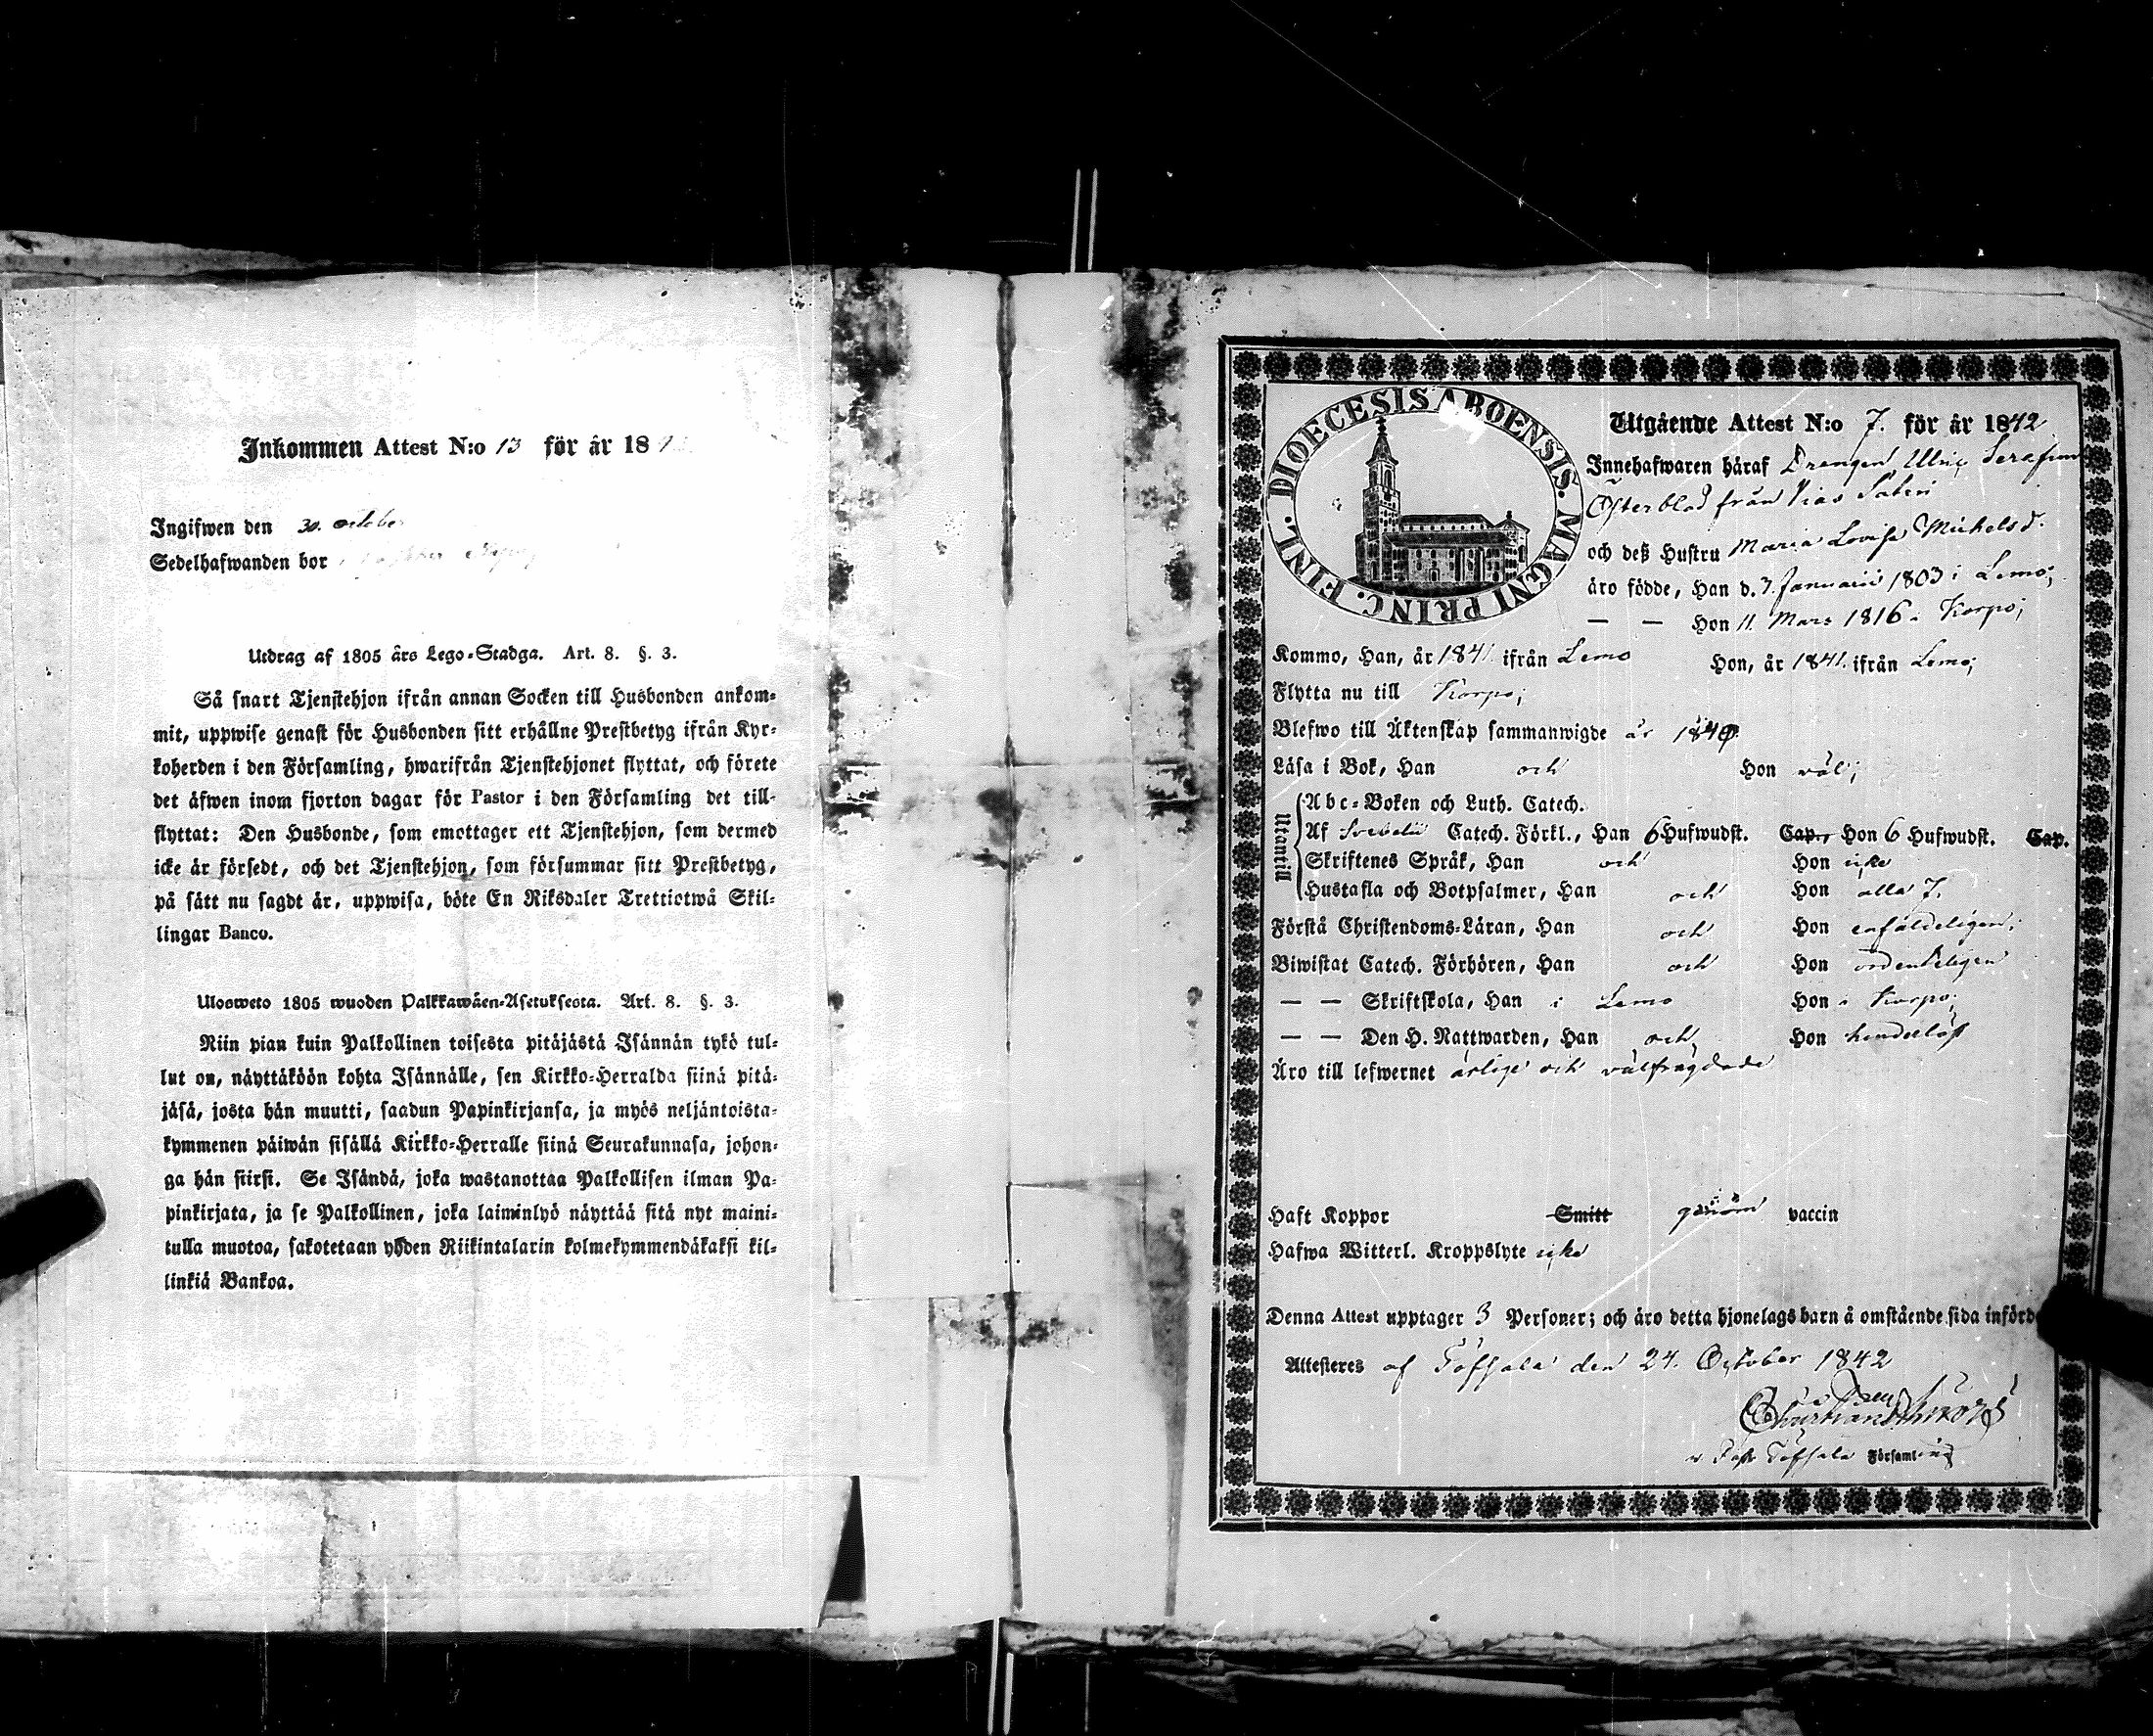 Inkommen Attest N:o 13 för år 18
Ingifwen den 30. october
Sedelhafwanden bor
Utdrag af 1805 års Lego-Stadga. Art. 8. §. 3.
Så snart Tjenstehjon ifrån annan Socken till Husbonden ankom-
mit, uppwise genast för Husbonden sitt erhållne Prestbetyg ifrån Kyr-
koherden i den Församling, hwarifrån Tjenstehjonet flyttat, och förete
det äfwen inom fjorton dagar för Pastor i den Församling det till-
flyttat: Den Husbonde, som emottager ett Tjenstehjon, som dermed
icke är försedt, och det Tjenstehjon, som försummar sitt Prestbetyg,
på sätt nu sagdt är, uppwisa, böte En Riksdaler Trettiotwå Skil-
lingar Banco.
Ulosweto 1805 wuoden Palkkawäen-Asetuksesta. Art. 8. §. 3.
Niin pian kuin Palkollinen toisesta pitäjästä Isännän tykö tul-
lut on, näyttäköön kohta Isännälle, sen Kirkko-Herralda siinä pitä-
jäsä, josta hän muutti, saadun Papinkirjansa, ja myös neljäntoista-
kymmenen päiwän sisällä Kirkko-Herralle siinä Seurakunnasa, johon-
ga hän siirsi. Se Isändä, joka wastanottaa Palkollisen ilman Pa-
pinkirjata, ja se Palkollinen, joka laiminlyö näyttää sitä nyt maini-
tulla muotoa, sakotetaan yhden Riikintalarin kolmekymmendäkaksi kil-
linkiä Bankoa.
DIOECESIS ABOENSIS. MAGNI PRINC. FINL.
Utgående Attest N:o 7. för år 1842
Innehafwaren häraf Drengen Ulric Serafim
Österblad från Vias Säteri
och deß Hustru Maria Lovisa Michelsd.
äro födde, Han d. 7. Januarii 1803 i Lemo;
— — Hon 11. Mars 1816 i Korpo;
Kommo, Han, år 1841. ifrån Lemo Hon, år 1841. ifrån Lemo;
Flytta nu till Korpo;
Blefwo till Äktenskap sammanwigde år 1840
Läsa i Bok, Han och Hon väl;
Utantill
Abc-Boken och Luth. Catech.
Af Svebelii Catech. Förkl., Han 6 Hufwudst. Cap., Hon 6 Hufwudst. Cap.
Skriftenes Språk, Han och Hon icke
Hustafla och Botpsalmer, Han och Hon alla 7.
Förstå Christendoms-Läran, Han och Hon enfäldeligen;
Biwistat Catech. Förhören, Han och Hon ordenteligen
— — Skriftskola, Han i Lemo Hon i Korpo;
— — Den H. Nattwarden, Han och Hon hinderlöst
Äro till lefwernet ärlige och välfrägdade
Haft Koppor Smitt genom vaccin
Hafwa Witterl. Kroppslyte icke
Denna Attest upptager 3 Personer; och äro detta hjonelags barn å omstående sida införd
Attesteres af Töfsala den 24. October 1842
Töfsala Församling